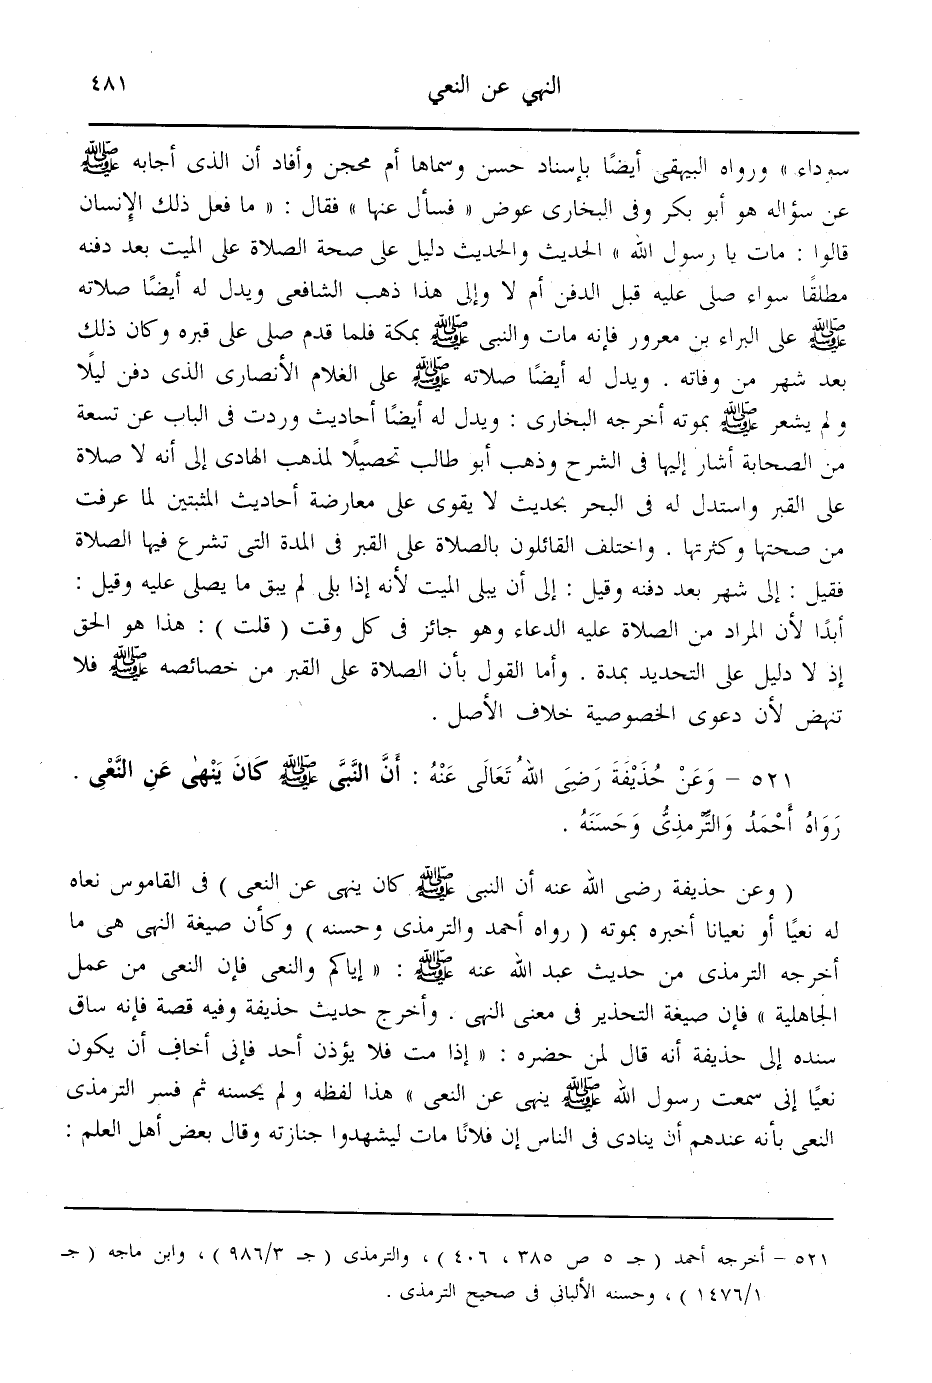 النهي عن النعي
٤٨١
سوداء » ورواه البيهقى أيضًا بإسناد حسن وسماها أم محجن وأفاد أن الذى أجابه ﷺ
عن سؤاله هو أبو بكر وفى البخارى عوض « فسأل عنها » فقال : « ما فعل ذلك الإنسان
قالوا : مات يا رسول الله » الحديث والحديث دليل على صحة الصلاة على الميت بعد دفنه
مطلقًا سواء صلى عليه قبل الدفن أم لا وإلى هذا ذهب الشافعى ويدل له أيضًا صلاته
ﷺ على البراء بن معرور فإنه مات والنبى ﷺ بمكة فلما قدم صلى على قبره وكان ذلك
بعد شهر من وفاته . ويدل له أيضًا صلاته ﷺ على الغلام الأنصارى الذى دفن ليلًا
ولم يشعر ﷺ بموته أخرجه البخارى : ويدل له أيضًا أحاديث وردت فى الباب عن تسعة
من الصحابة أشار إليها فى الشرح وذهب أبو طالب تحصيلًا لمذهب الهادى إلى أنه لا صلاة
على القبر واستدل له فى البحر بحديث لا يقوى على معارضة أحاديث المثبتين لما عرفت
من صحتها وكثرتها . واختلف القائلون بالصلاة على القبر فى المدة التى تشرع فيها الصلاة
فقيل : إلى شهر بعد دفنه وقيل : إلى أن يبلى الميت لأنه إذا بلى لم يبق ما يصلى عليه وقيل :
أبدًا لأن المراد من الصلاة عليه الدعاء وهو جائز فى كل وقت ( قلت ) : هذا هو الحق
إذ لا دليل على التحديد بمدة . وأما القول بأن الصلاة على القبر من خصائصه ﷺ فلا
تنهض لأن دعوى الخصوصية خلاف الأصل .
٥٢١ – وَعَنْ حُذَيْفَةَ رَضِيَ اللهُ تَعَالَى عَنْهُ : أَنَّ النَّبِىَّ ﷺ كَانَ يَنْهٰى عَنِ النَّعْىِ .
رَوَاهُ أَحْمَدُ وَالتِّرْمذِىُّ وَحَسَنَهُ .
( وعن حذيفة رضى الله عنه أن النبى ﷺ كان ينهى عن النعى ) فى القاموس نعاه
له نعيًا أو نعيانا أخبره بموته ( رواه أحمد والترمذى وحسنه ) وكأن صيغة النهى هى ما
أخرجه الترمذى من حديث عبد الله عنه ﷺ : « إياكم والنعى فإن النعى من عمل
الجاهلية » فإن صيغة التحذير فى معنى النهى . وأخرج حديث حذيفة وفيه قصة فإنه ساق
سنده إلى حذيفة أنه قال لمن حضره : « إذا مت فلا يؤذن أحد فإنى أخاف أن يكون
نعيًا إنى سمعت رسول الله ﷺ ينهى عن النعى » هذا لفظه ولم يحسنه ثم فسر الترمذى
النعى بأنه عندهم أن ينادى فى الناس إن فلانًا مات ليشهدوا جنازته وقال بعض أهل العلم :
٥٢١ – أخرجه أحمد ( جـ ٥ ص ٣٨٥ ، ٤٠٦ ) ، والترمذى ( جـ ٩٨٦/٣ ) ، وابن ماجه ( جـ
١٤٧٦/١ ) ، وحسنه الألبانى فى صحيح الترمذى .